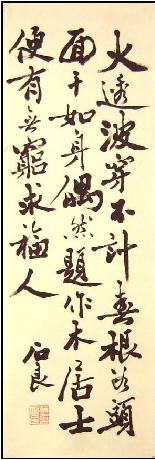 火透波穿不計春根如頭
面干如身偶然題作木居士
便有無窮求福人
石良